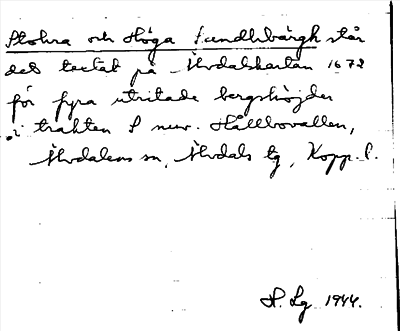 Stohra och Höga Sundhsbärgh står
det textat på Älvdalskartan 1672
för fyra utritade bergshöjder
i trakten S nuv. Hållbovallen,
Älvdalens sn, Älvdals tg, Kopp. l.
H. Lg 1944.